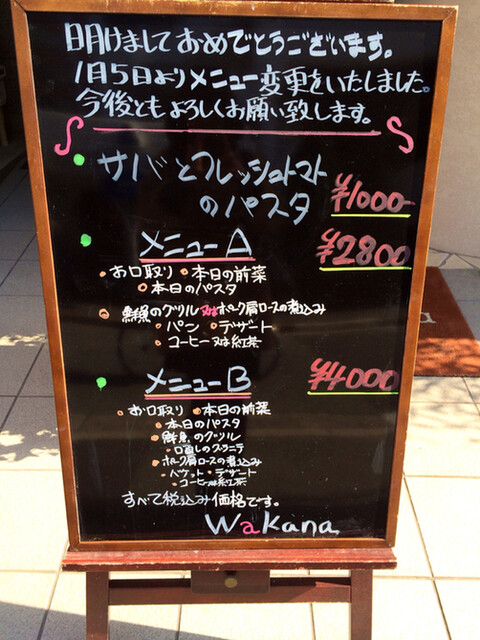 日明けましておめでとうございます。
1月5日よりメニュー変更をいたしました。
今後ともよろしくお願い致します。
サバとフレッシュトマト
のパスタ ¥1000-
メニューA ¥2800
お口取り 本日の前菜
本日のパスタ
鮮魚のグリル又はポーク肩ロースの煮込み
パン デザート
コーヒー又は紅茶
メニューB ¥4000
お口取り 本日の前菜
本日のパスタ
鮮魚のグリル
口直しのグラニテ
ポーク肩ロースの煮込み
バケット デザート
コーヒー又は紅茶
すべて税込み価格です。
Wakana